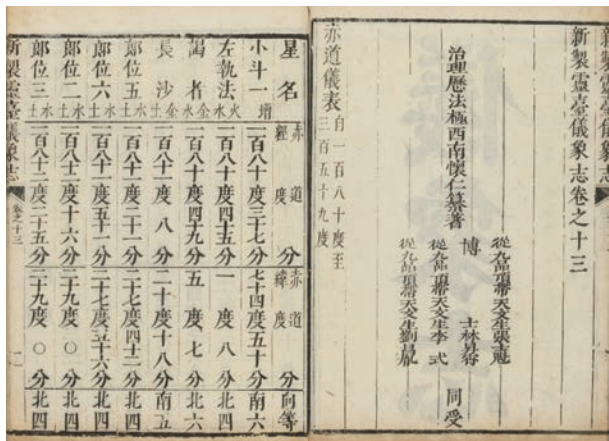 新製靈臺儀象志
新製靈臺儀象志卷之十三
治理曆法極西南懷仁纂著
從九品頂帶天文生張士魁
博士林昇
從九品頂帶天文生李式
從九品頂帶天文生劉昌
同受
赤道儀表 自一百八十度至三百五十九度
星名 赤道經度 分 赤道緯度 分 向等
小斗一增 一百八十度三十七分 七十四度五十分 南六
左執法 火水 一百八十度四十五分 一度八分 北四
謁者 金水 一百八十度四十九分 五度七分 北六
長沙 金土 一百八十一度八分 二十度十八分 南五
郎位五 水土 一百八十一度二十一分 二十七度四十二分 北四
郎位六 水土 一百八十一度五十一分 二十七度五十六分 北四
郎位二 水土 一百八十二度十六分 二十九度〇分 北四
郎位三 水土 一百八十二度二十五分 二十九度〇分 北四
新製靈臺儀象志 卷之十三 一